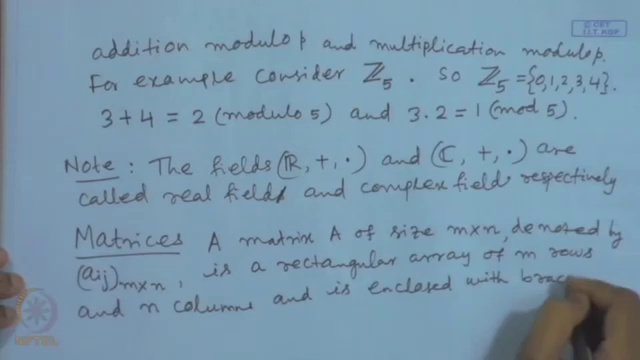 © CET
I.I.T. KGP
addition modulo p and multiplication modulo p.
For example consider ℤ₅ . So ℤ₅ = {0,1,2,3,4}.
3+4 = 2 (modulo 5) and 3.2 = 1 (mod 5).
Note : The fields (ℝ, +, .) and (ℂ, +, .) are
called real field and complex field respectively
Matrices A matrix A of size m×n, denoted by
(aij)m×n, is a rectangular array of m rows
and n columns and is enclosed with brac
NPTEL